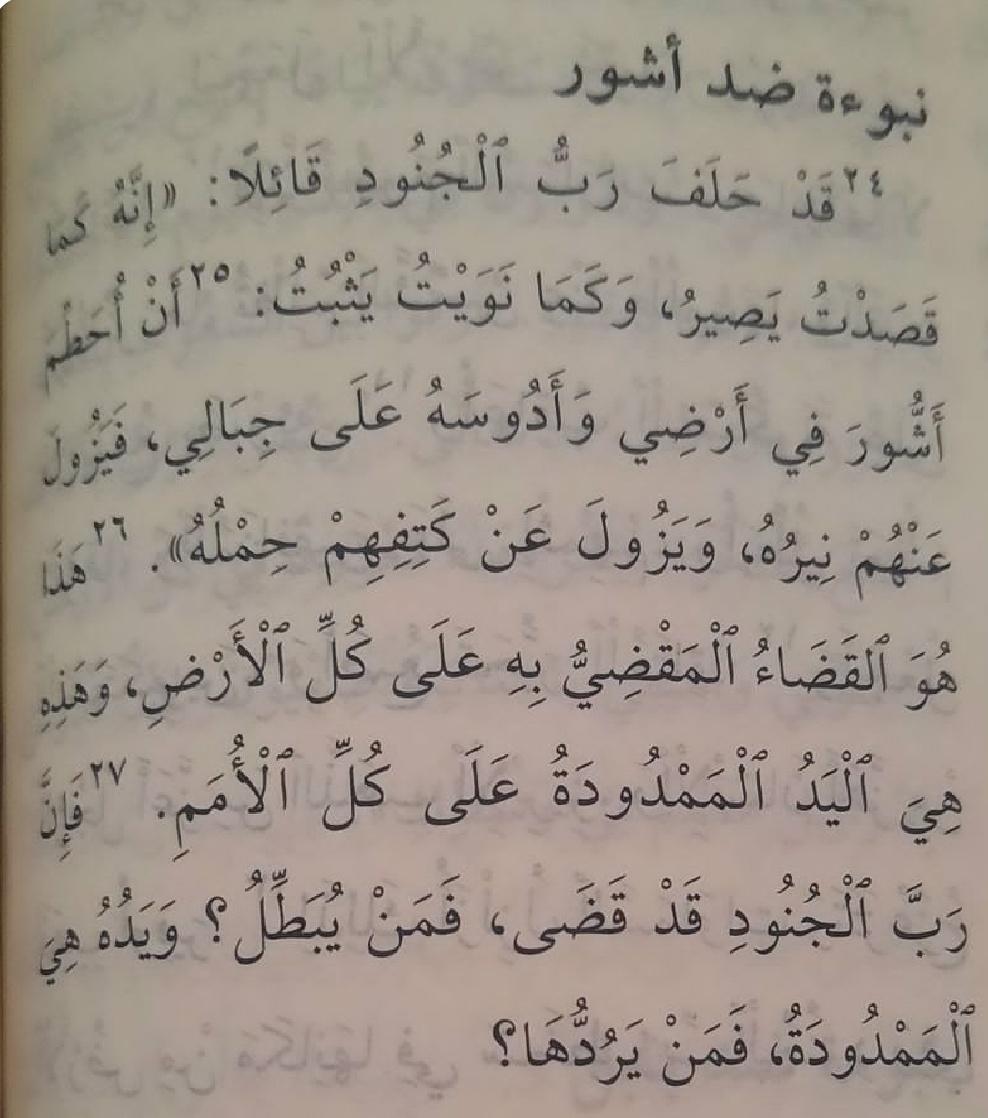 نبوءة ضد أشور
٢٤ قَدْ حَلَفَ رَبُّ ٱلْجُنُودِ قَائِلًا: «إِنَّهُ كَمَا
قَصَدْتُ يَصِيرُ، وَكَمَا نَوَيْتُ يَثْبُتُ: ٢٥ أَنْ أُحَطِّمَ
أَشُّورَ فِي أَرْضِي وَأَدُوسَهُ عَلَى جِبَالِي، فَيَزُولَ
عَنْهُمْ نِيرُهُ، وَيَزُولَ عَنْ كَتِفِهِمْ حِمْلُهُ». ٢٦ هَذَا
هُوَ ٱلْقَضَاءُ ٱلْمَقْضِيُّ بِهِ عَلَى كُلِّ ٱلْأَرْضِ، وَهَذِهِ
هِيَ ٱلْيَدُ ٱلْمَمْدُودَةُ عَلَى كُلِّ ٱلْأُمَمِ. ٢٧ فَإِنَّ
رَبَّ ٱلْجُنُودِ قَدْ قَضَى، فَمَنْ يُبَطِّلُ؟ وَيَدُهُ هِيَ
ٱلْمَمْدُودَةُ، فَمَنْ يَرُدُّهَا؟